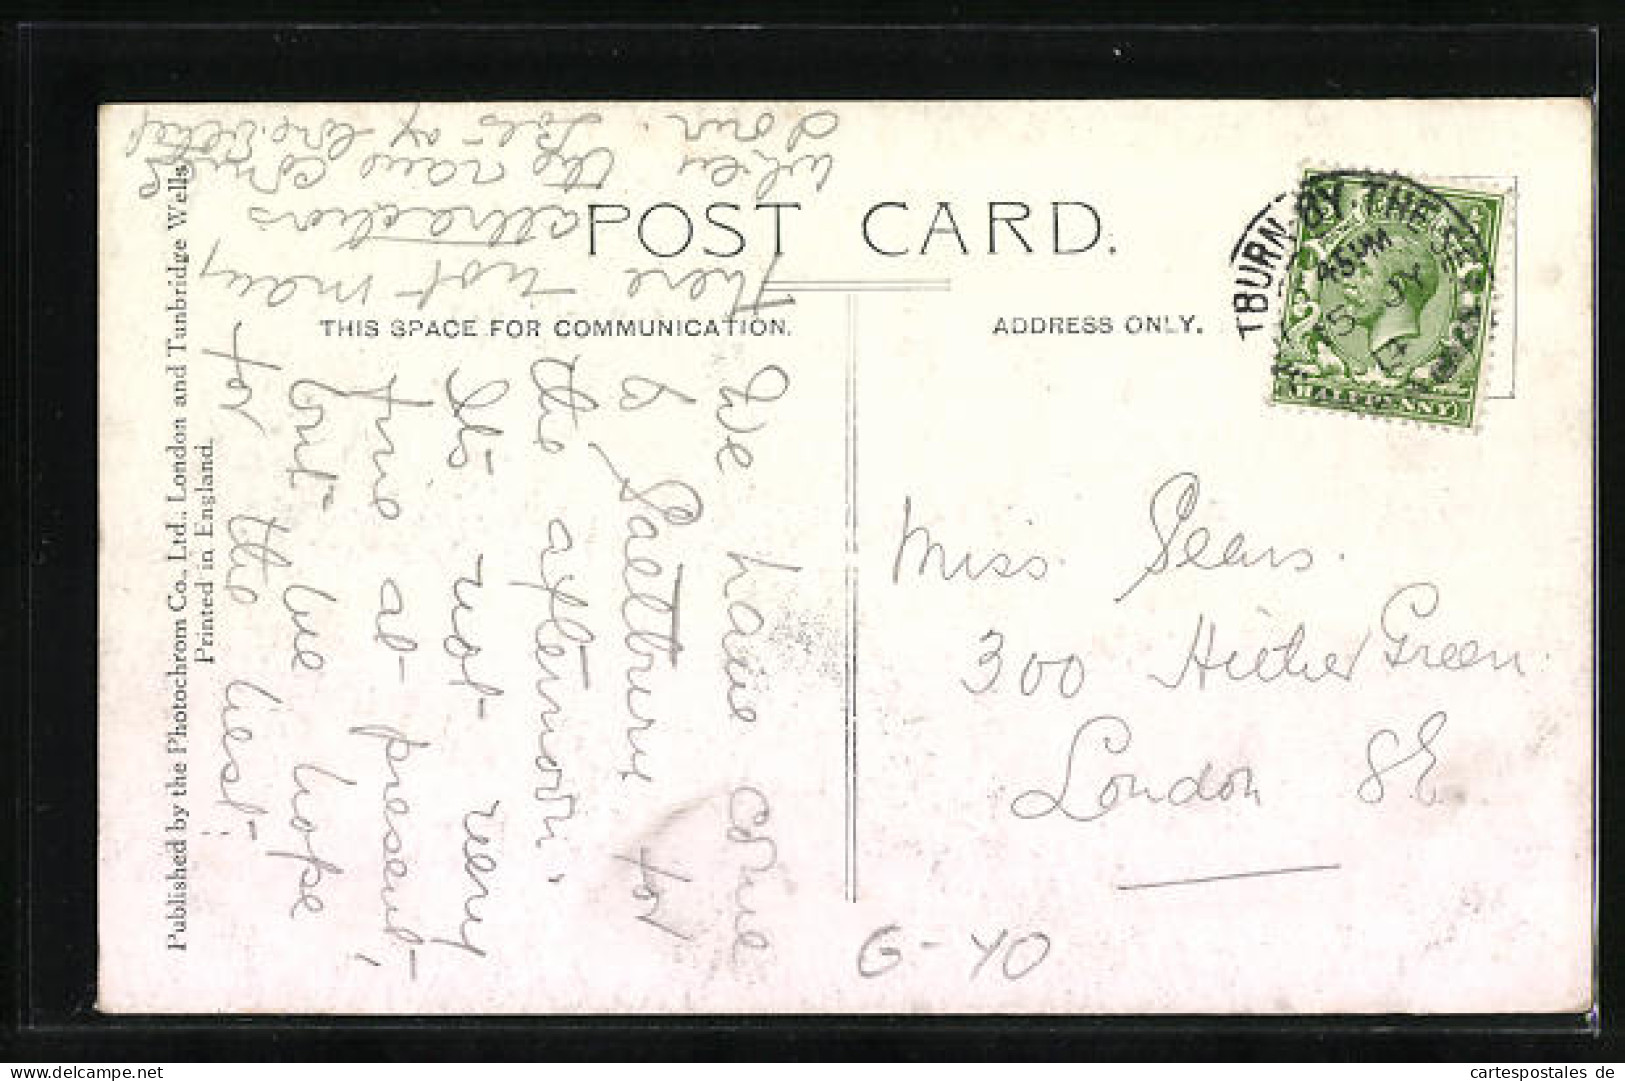 POST CARD.
THIS SPACE FOR COMMUNICATION.
ADDRESS ONLY.
We have come
to Saltburn for
the afternoon.
Its not very
fine at present,
but we hope
for the best.
There not many
attractions
when the rain comes
down. Lots of love
Published by the Photochrom Co., Ltd., London and Tunbridge Wells.
Printed in England.
TBURN-BY-THE-SE
45PM
15 JY
HALFPENNY
Miss. Sears.
300 Hither Green.
London S.E.
6-40
cartespostales.de